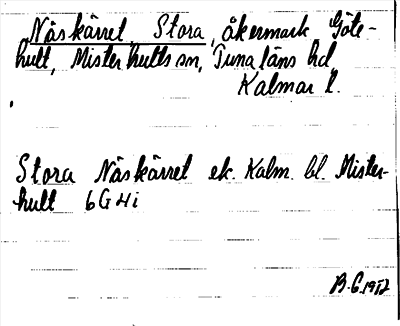 Näskärret, Stora, åkermark Göte-
hult, Misterhults sn, Tunaläns hd
Kalmar l.
Stora Näskärret ek. Kalm. bl. Mister-
hult 6G4i
B.G. 1972